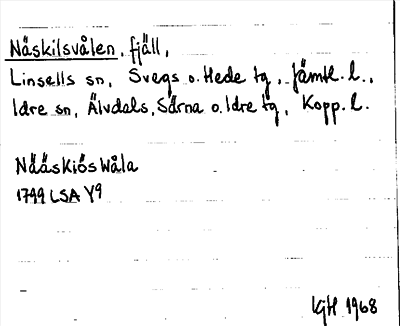 Näskilsvålen, fjäll,
Linsells sn, Svegs o. Hede tg, Jämtl. l.,
Idre sn, Älvdals, Särna o. Idre tg, Kopp. l.
Nääskiöswåla
1799 LSA Y9
KgH 1968